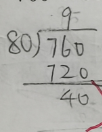 9
80)760
720
40